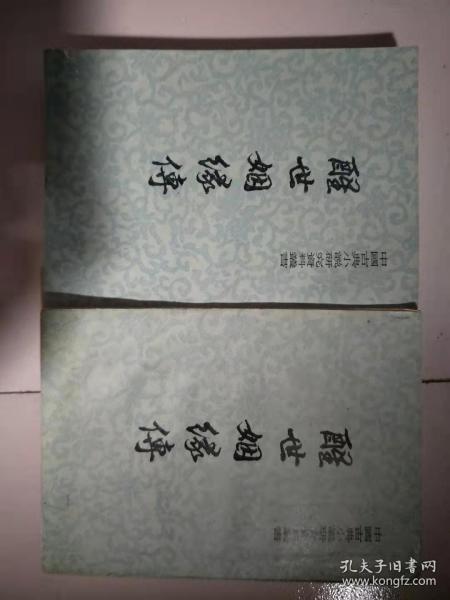 醒世姻缘傳
中國古典小說研究資料叢書
醒世姻缘傳
中國古典小說研究資料叢書
孔夫子旧书网
www.kongfz.com